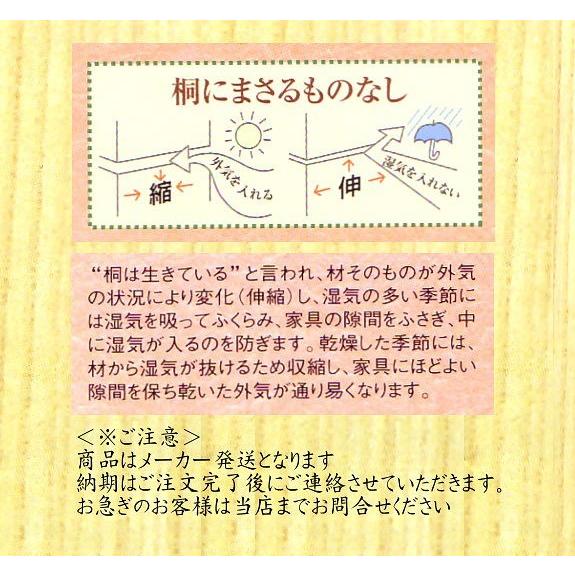 桐にまさるものなし
外気を入れる
縮
湿気を入れない
伸
“桐は生きている”と言われ、材そのものが外気
の状況により変化(伸縮)し、湿気の多い季節に
は湿気を吸ってふくらみ、家具の隙間をふさぎ、中
に湿気が入るのを防ぎます。乾燥した季節には、
材から湿気が抜けるため収縮し、家具にほどよい
隙間を保ち乾いた外気が通り易くなります。
<※ご注意>
商品はメーカー発送となります
納期はご注文完了後にご連絡させていただきます。
お急ぎのお客様は当店までお問合せください